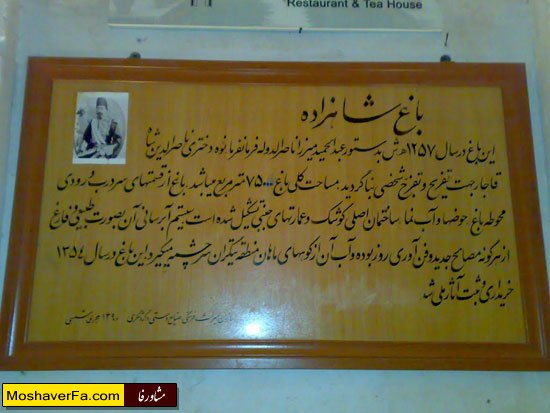 Restaurant & Tea House
باغ شاهزاده
این باغ در سال ۱۲۵۷ ه ش بدستور عبدالحمید میرزا ناصرالدوله فرمانفرما نوه دختری ناصرالدین شاه
قاجار جهت تفریح و تفرج شخصی بنا گردید. مساحت کلی باغ ۷۵۰۰ مترمربع میباشد. باغ از قسمتهای سردرب ورودی
محوطه باغ حوضها و آب نما ساختمان اصلی کوشک و عمارتهای جنبی تشکیل شده است سیستم آبرسانی آن بصورت طبیعی و فارغ
از هرگونه مصالح جدید و فن آوری روز بوده و آب آن از کوههای ماهان منطقه تیگران سرچشمه میگیرد. این باغ در سال ۱۳۵۷
خریداری و ثبت آثار ملی شد
میراث فرهنگی، صنایع دستی و گردشگری ۱۳۹۰ هجری شمسی
MoshaverFa.com
مشاورفا